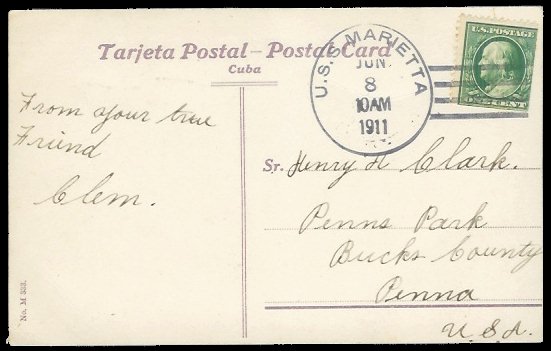 Tarjeta Postal – Postal Card
Cuba
U.S.S. MARIETTA
JUN
8
10AM
1911
U.S. POSTAGE
ONE CENT
From your true
Friend
Clem.
Sr. Henry H Clark.
Penns Park
Bucks County
Penna
U.S.A.
No. M 383.